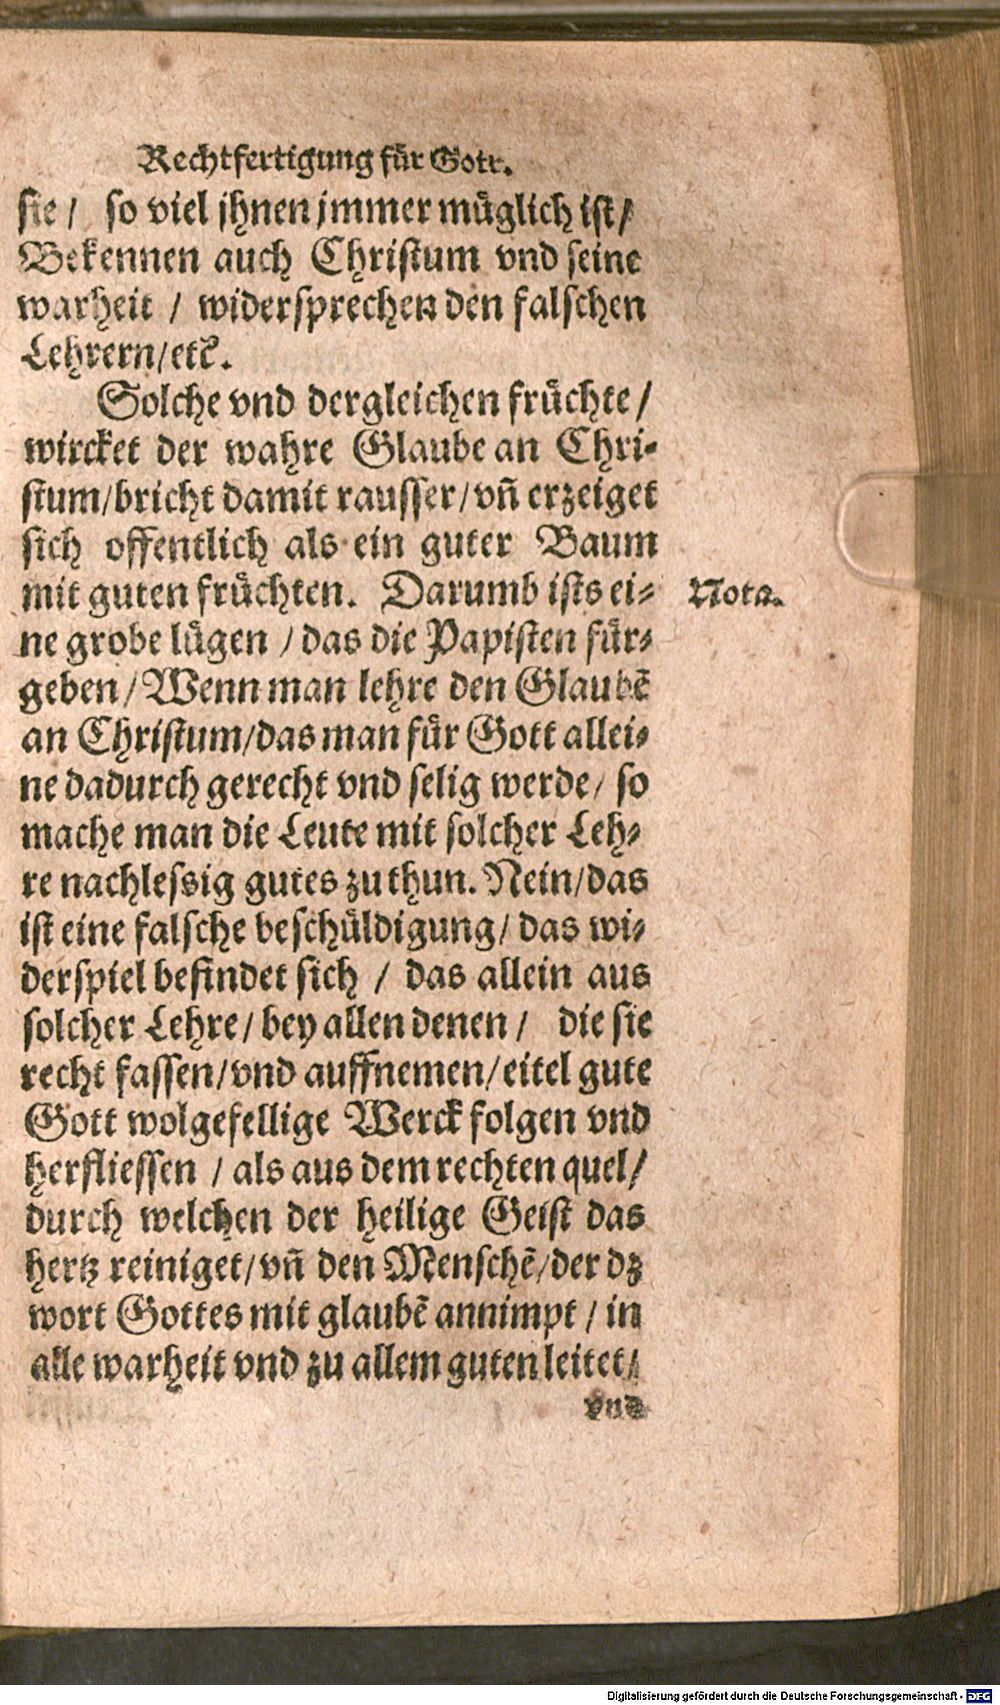 Rechtfertigung für Gott.
sie / so viel jhnen jmmer müglich ist /
Bekennen auch Christum vnd seine
warheit / widersprechen den falschen
Lehrern / etc.
Solche vnd dergleichen früchte /
wircket der wahre Glaube an Chri-
stum / bricht damit rausser / vñ erzeiget
sich offentlich als ein guter Baum
mit guten früchten. Darumb ists ei-
Nota.
ne grobe lügen / das die Papisten für-
geben / Wenn man lehre den Glaubẽ
an Christum / das man für Gott allei-
ne dadurch gerecht vnd selig werde / so
mache man die Leute mit solcher Leh-
re nachlessig gutes zu thun. Nein / das
ist eine falsche beschüldigung / das wi-
derspiel befindet sich / das allein aus
solcher Lehre / bey allen denen / die sie
recht fassen / vnd auffnemen / eitel gute
Gott wolgefellige Werck folgen vnd
herfliessen / als aus dem rechten quel /
durch welchen der heilige Geist das
hertz reiniget / vñ den Menschẽ / der dz
wort Gottes mit glaubẽ annimpt / in
alle warheit vnd zu allem guten leitet /
vnd
Digitalisierung gefördert durch die Deutsche Forschungsgemeinschaft - DFG